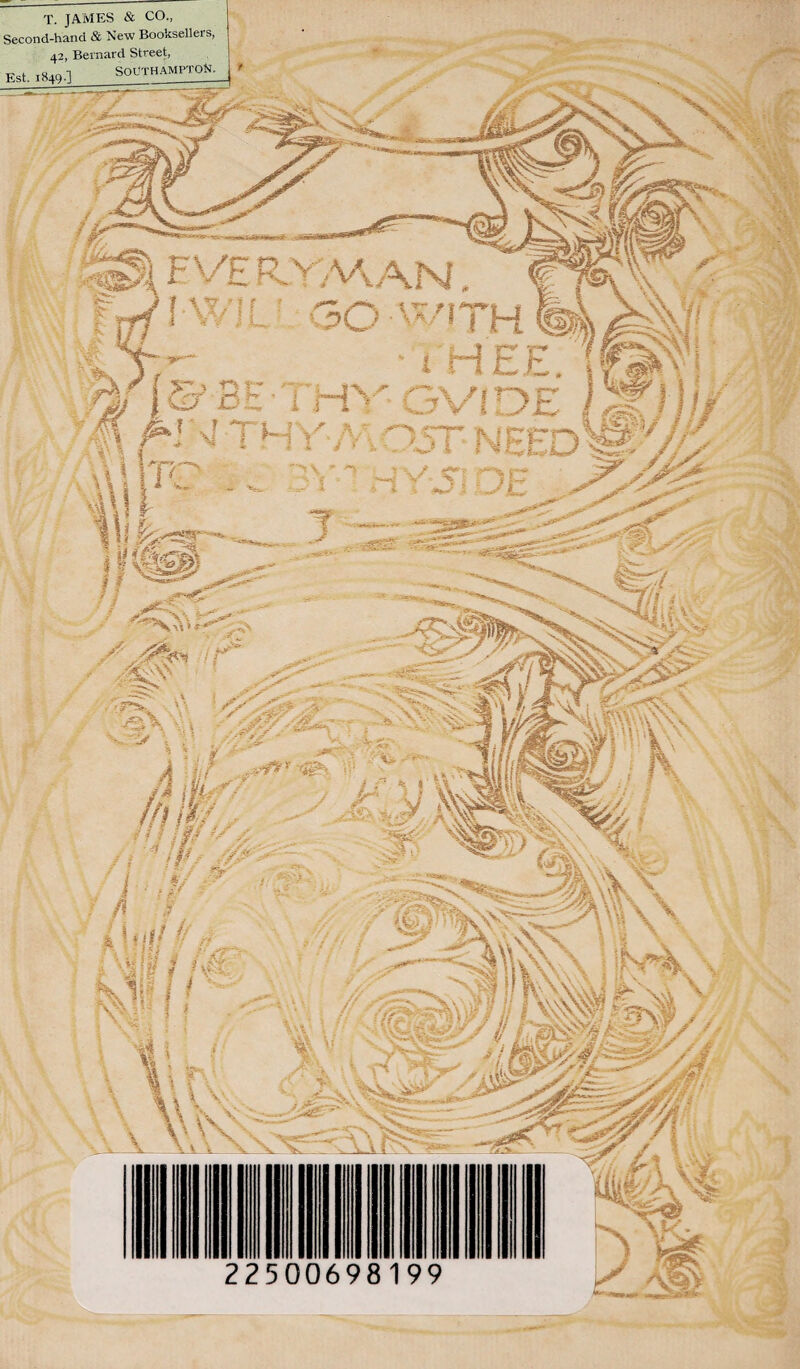 T. JAMES & CO.,
Second-hand & New Booksellers,
42, Bernard Street,
Est. 1849.] SOUTHAMPTON.
EVERYMAN.
I·WILL GO·WITH
·THEE.
&·BE·THY·GVIDE
IN·THY·MOST·NEED
TO BY·THY·SIDE
22500698199